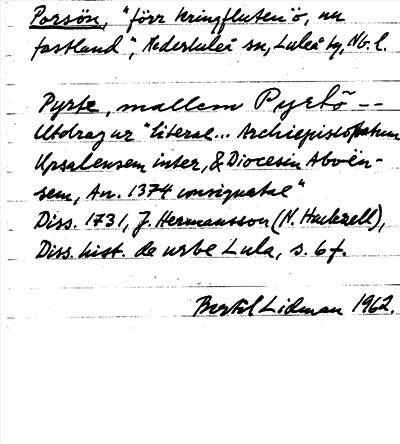 Porsön, "förr kringfluten ö, nu
fastland", Nederluleå sn, Luleå tg, Nb. l.
Pyrte, mallem Pyrtö --
Utdrag ur "literae... Archiepiscopatum
Upsalensem inter, & Diocesin Aboën-
sem, An. 1374 consignatae"
Diss. 1731, J. Hermansson (N. Hackzell),
Diss. hist. de urbe Lula, s. 6 f.
Bertil Lidman 1962.